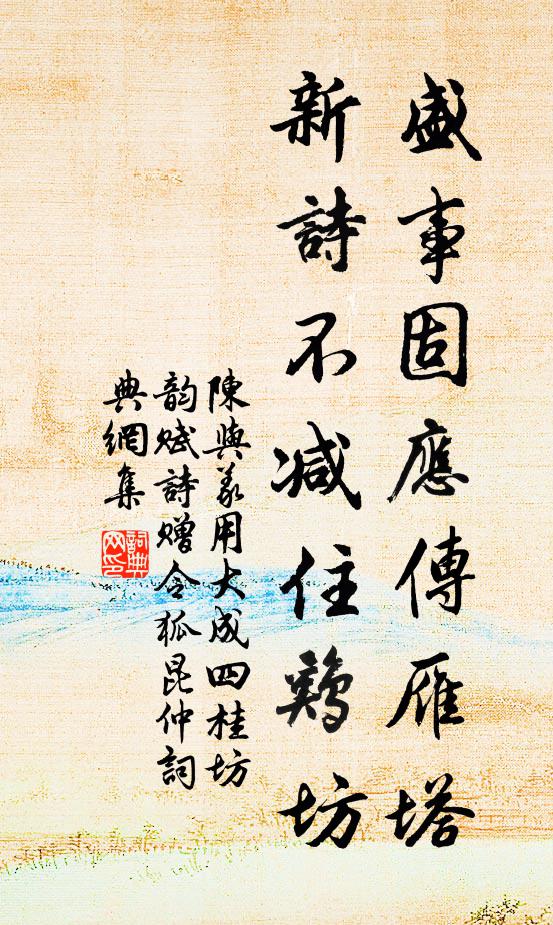 盛事固應傳雁塔
新詩不減住鷄坊
陳與義用大成四桂坊
韵賦詩贈令狐昆仲詞
典網集
詞典
网印